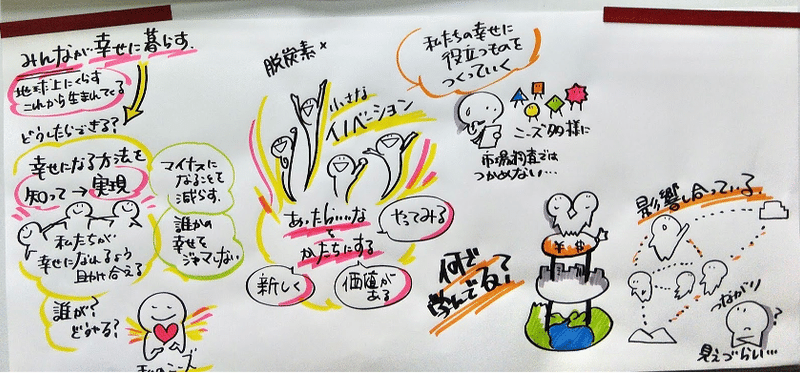 みんなが幸せに暮らす.
地球上にくらす
これから生まれてくる
どうしたらできる?
幸せになる方法を
知って→実現
私たちが
幸せになれるよう
助け合える
誰が?
どうやる?
マイナスに
なることを
減らす.
誰かの
幸せを
ジャマしない
脱炭素×
小さな
イノベーション
あったらいいな
を
かたちにする
やってみる
新しく
価値が
ある
私たちの幸せに
役立つものを
つくっていく
ニーズ多様に
市場調査では
つかめない…
何で
学んでる?
影響し合っている.
つながり
?
見えづらい…